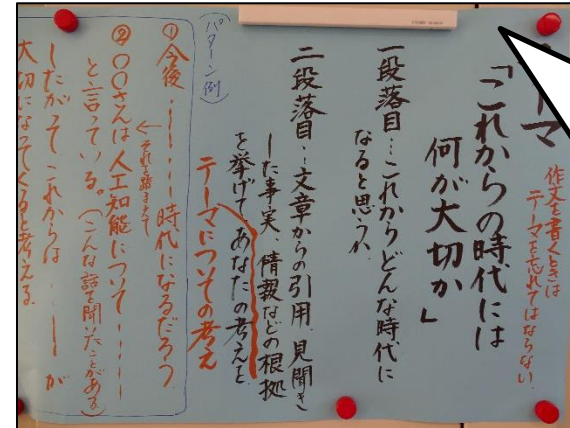 作文を書くときは
テーマを忘れてはならない。
ーマ
「これからの時代には
何が大切か」
一段落目…これからどんな時代に
なると思うか
二段落目…文章からの引用、見聞き
した事実、情報などの根拠
を挙げて、あなたの考えを
テーマについての考え
(パターン例)
①今後……時代になるだろう
それを踏まえて
②〇〇さんは人工知能について……
と言っている。(こんな話を聞いたことがある)
したがってこれからは……が
大切になってくると考える。